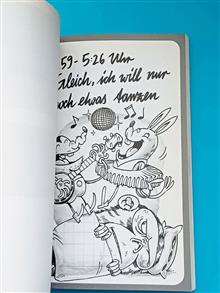 59-5:26 Uhr
Gleich, ich will nur
noch etwas tanzen